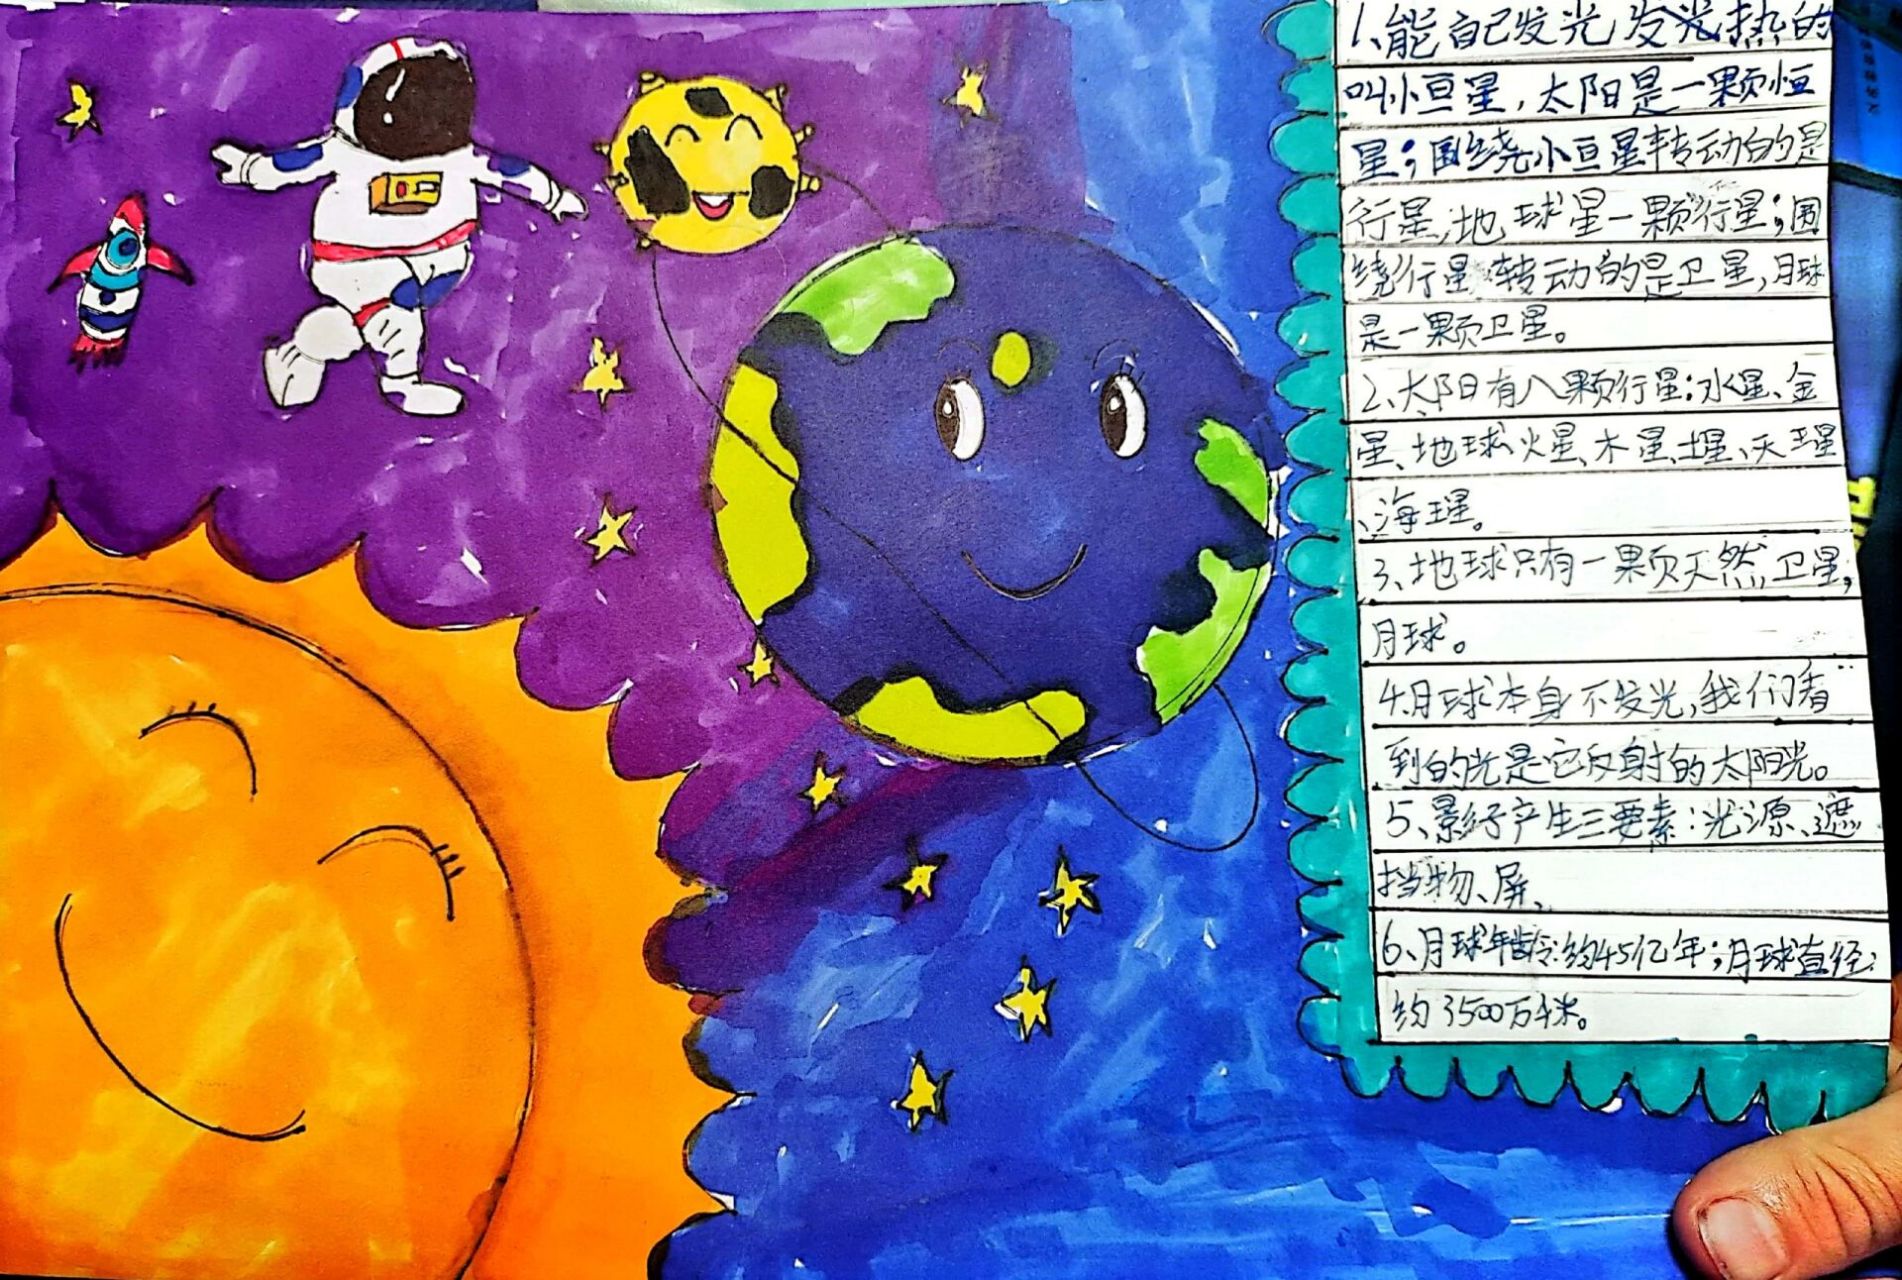 1、能自己发光发光热的
叫小亘星，太阳是一颗恒
星；围绕小亘星转动的是
行星，地球星一颗行星；围
绕行星转动的是卫星，月球
是一颗卫星。
2、太阳有八颗行星：水星、金
星、地球、火星、木星、土星、天王星
、海王星。
3、地球只有一颗天然卫星，
月球。
4.月球本身不发光，我们看
到的光是它反射的太阳光。
5、影子产生三要素：光源、遮
挡物、屏、
6、月球年龄：约45亿年；月球直径：
约3500万千米。